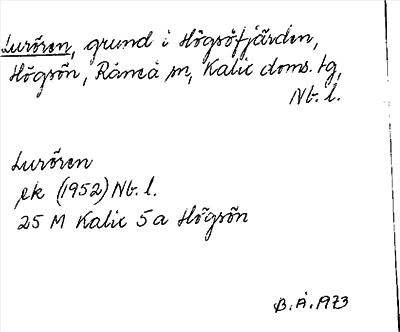 Lurören, grund i Högsöfjärden,
Högsön, Råneå sn, Kalix doms. tg,
Nb. l.
Lurören
ek (1952) Nb. l.
25 M Kalix 5a Högsön
B. Å. 1973